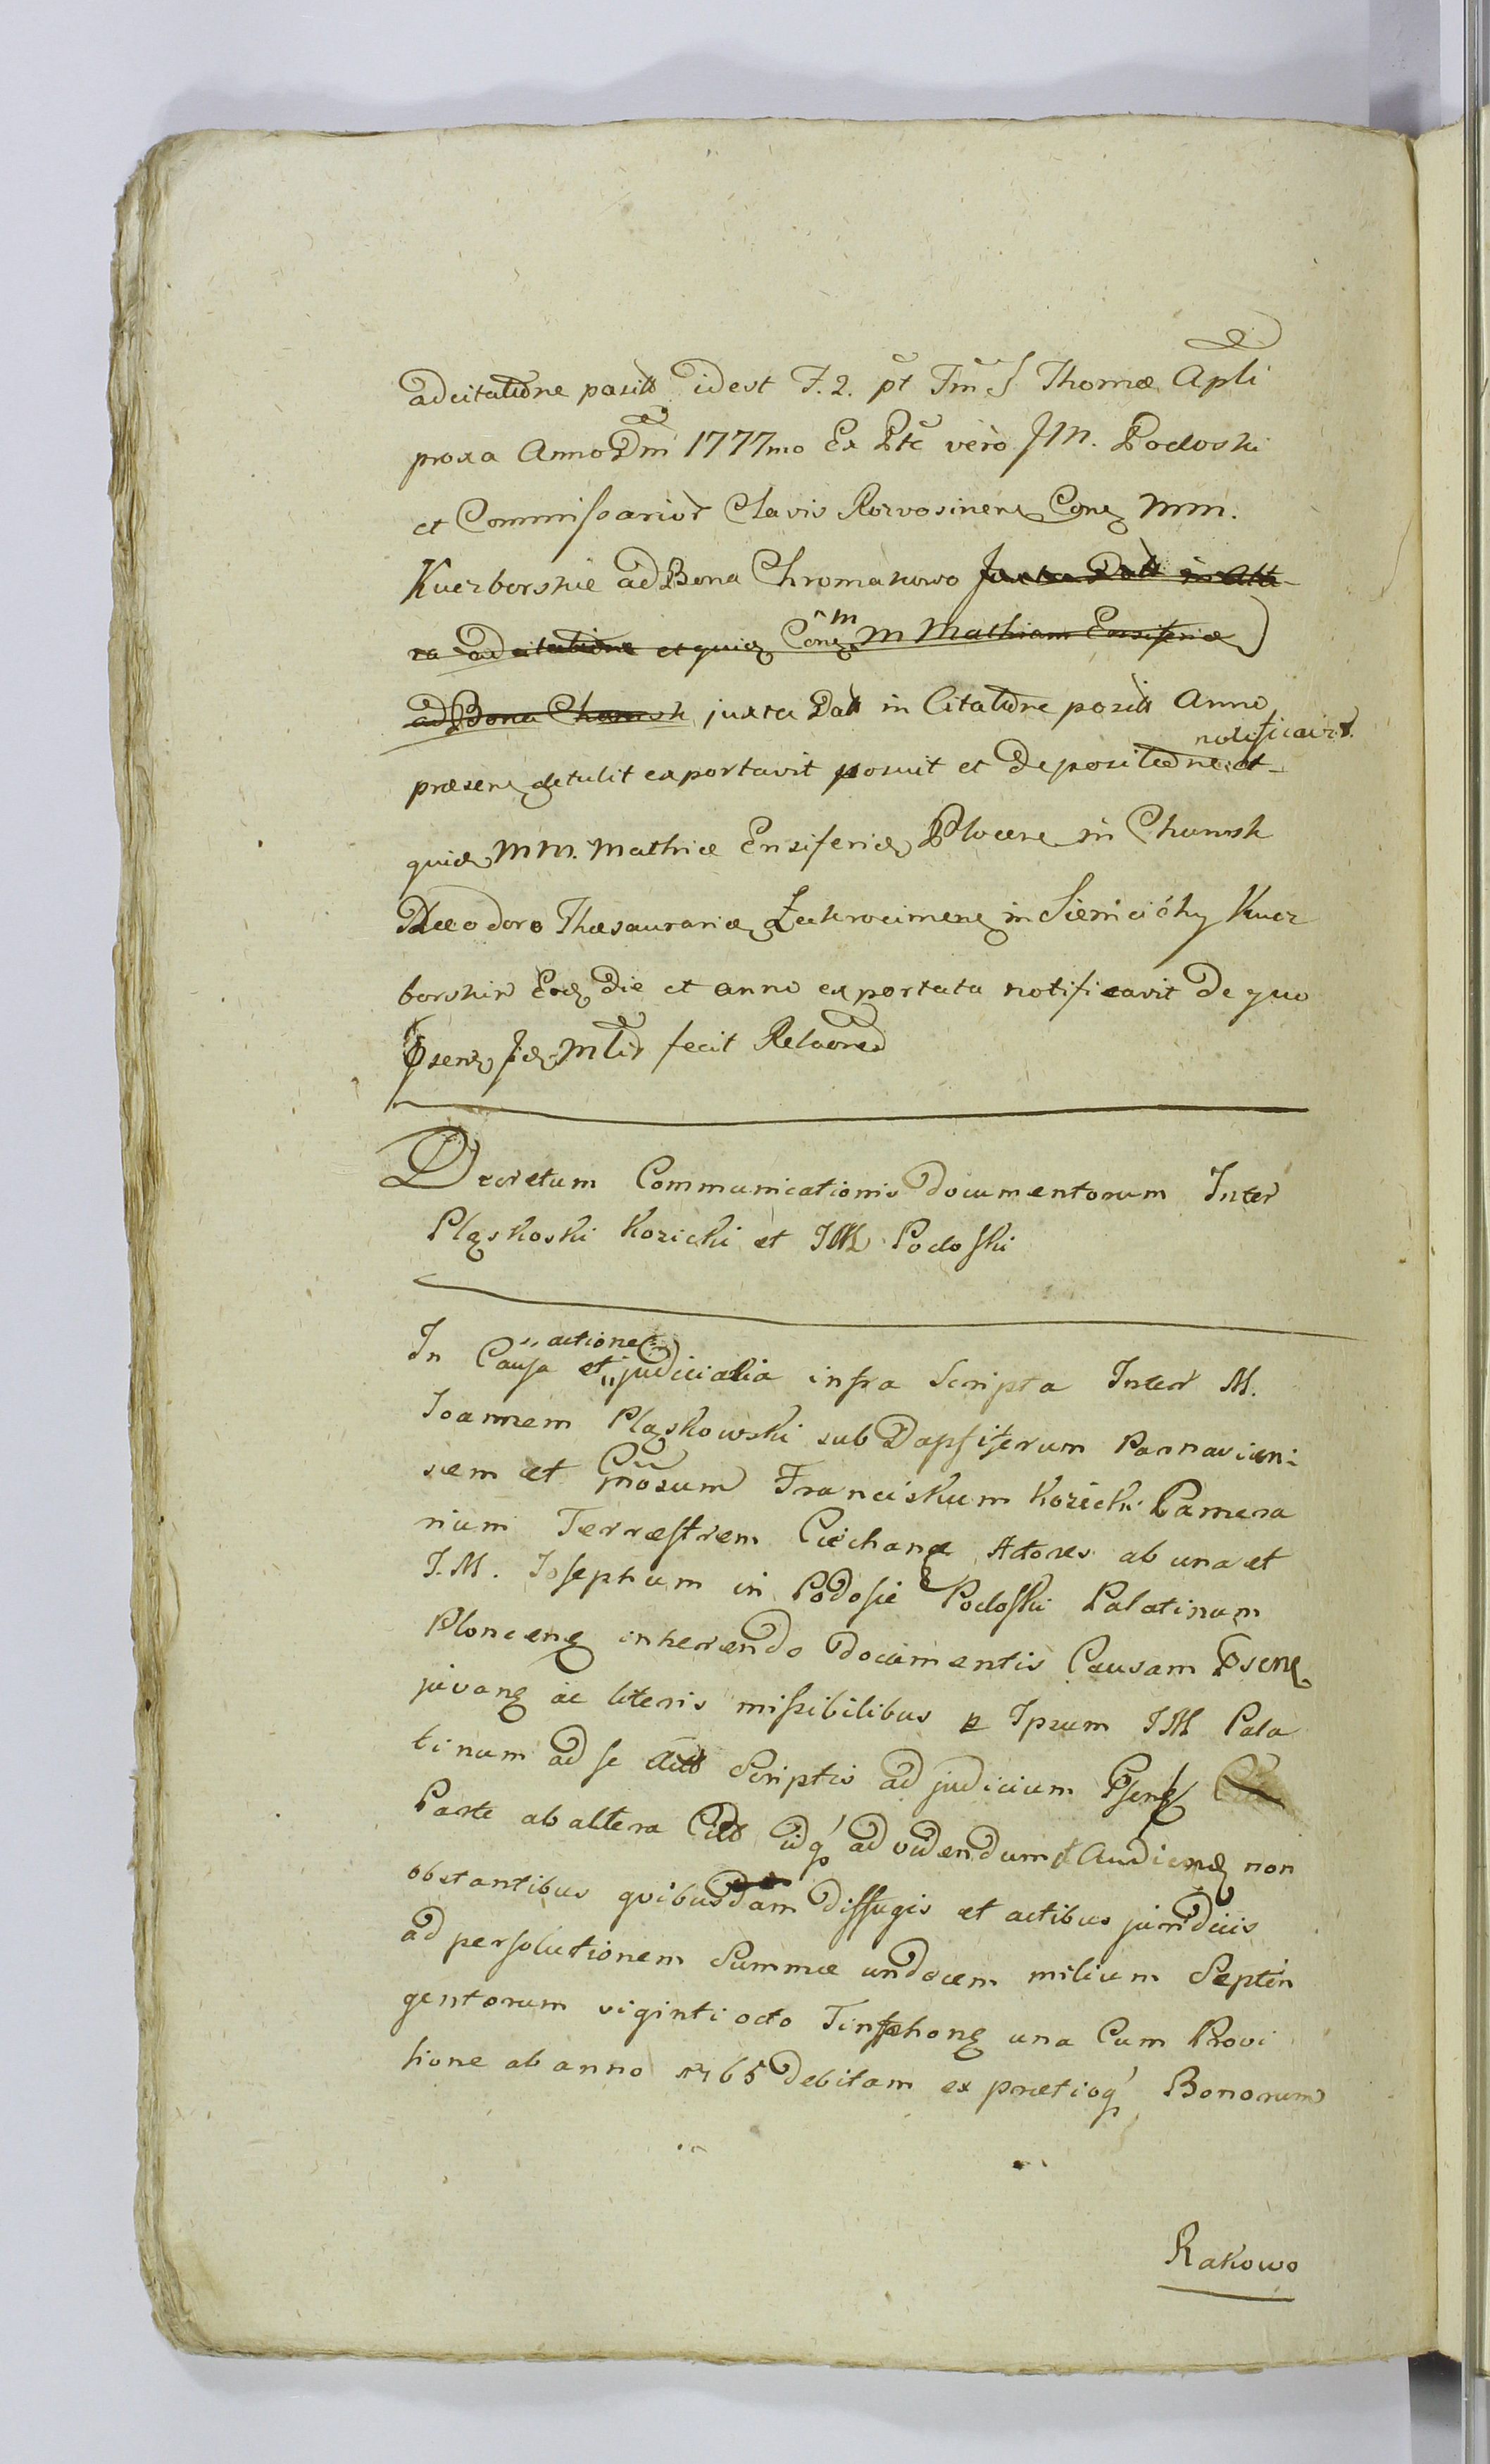 adcitatione positt idest F. 2. pt Fm S Thomæ Apli
proxa Anno Dni 1777mo Ex Pte verò JM. Podoski
et Commissarior Clavis Rozvosinen Cone MM.
Kuczborskie ad Bona Chromakowo juxta Datt in Alte
ra adcitatione et quidem Cone MM Mathiam Ensiferid
ad Bona Chamsk juxta Datt in Citatione positt Anno
notificavit
præsen detulit exportavit posuit et de positione et
quid MM. Mathiæ Ensiferid Plocen in Chamsk
Theodoro Thesaurarid Zakrocimen in Sieniciòhy Kucz
borskin Eod die et anno exportata notificavit De quo
Psens id Mltr fecit Relaoned
Decretum Communicationis documentorum Inter
Pląskoski Kozicki et JM Podoski
actione
In Causa et judicialia infra Scripta Inter M.
Joannem Pląskowski sub Dapiferum Parnavien:
sem et Gnosum Franciskum Kozicki Camera
rium Terrestrem Ciechane Actores ab una et
J.M. Josephum in Podosie Podoski Palatinum
Plonceng inherendo documentis Causam Psene
juvang ac literis missibilibus p Ipsum JM Pala
tinum ad se datt Scriptis ad judicium Psens
Parte ab altera Citt idq ad videndum et Audiend non
obstantibus quibusdam diffugis et actibus juridicis
ad persolutionem Summæ undecem milium Septin
gentorum viginti octo Tinphong una Cum Provi
sione ab anno 1765 debitam ex prætioq Bonorum
Rakowo